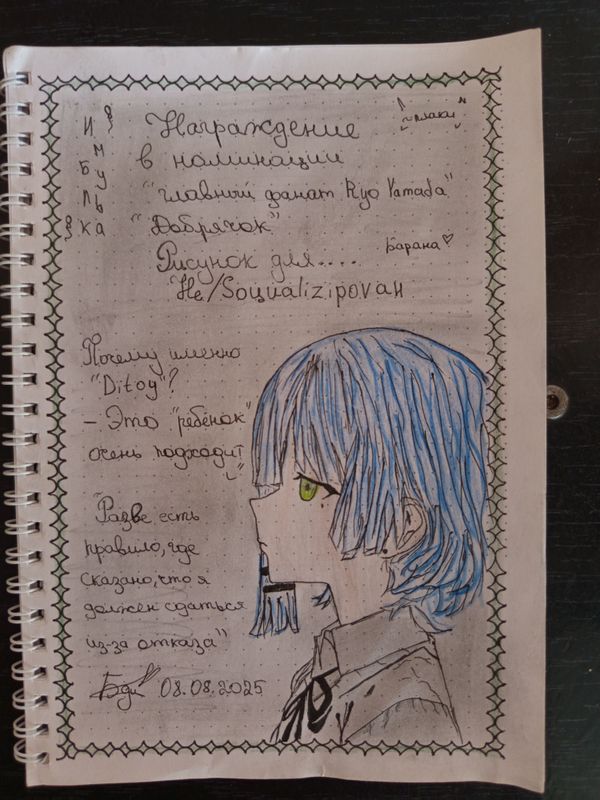 Награждение
в номинации
"главный фанат Ryo Yamada"
"Добрячок"
Рисунок для....
Барана♡
Не/Soциalizipoваn
и м
бу
ль
ка
~плакi~
Почему именно
"Ditoy"?
- Это "ребёнок"
очень подходит
"Разве есть
правило, где
сказано, что я
должен сдаться
из-за отказа"
08.08.2025